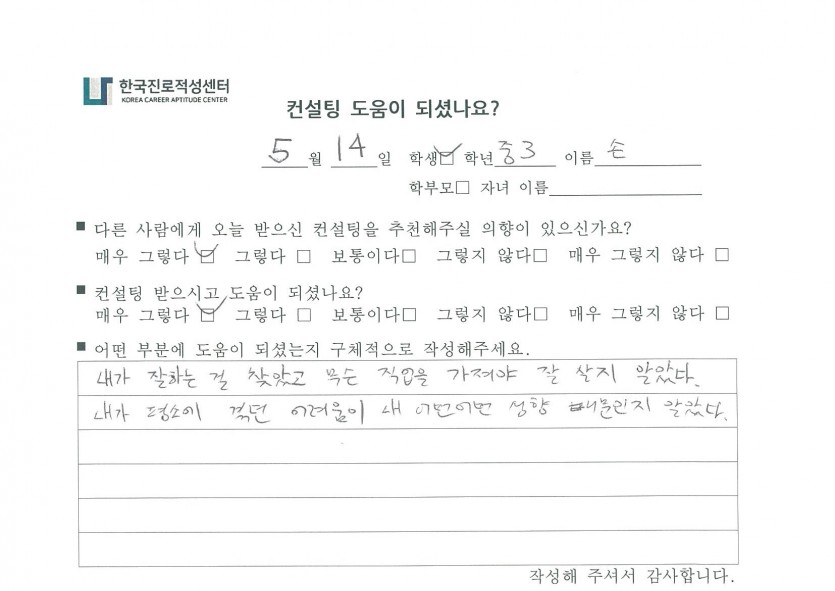 한국진로적성센터
KOREA CAREER APTITUDE CENTER
컨설팅 도움이 되셨나요?
5 월 14 일 학생☑ 학년 중3 이름 손
학부모□ 자녀 이름
■ 다른 사람에게 오늘 받으신 컨설팅을 추천해주실 의향이 있으신가요?
매우 그렇다 ☑ 그렇다 □ 보통이다□ 그렇지 않다□ 매우 그렇지 않다 □
■ 컨설팅 받으시고 도움이 되셨나요?
매우 그렇다 ☑ 그렇다 □ 보통이다□ 그렇지 않다□ 매우 그렇지 않다 □
■ 어떤 부분에 도움이 되셨는지 구체적으로 작성해주세요.
내가 잘하는 걸 찾았고 무슨 직업을 가져야 잘 살지 알았다.
내가 평소에 겪던 어려움이 내 어떤어떤 성향 때문인지 알았다.
작성해 주셔서 감사합니다.